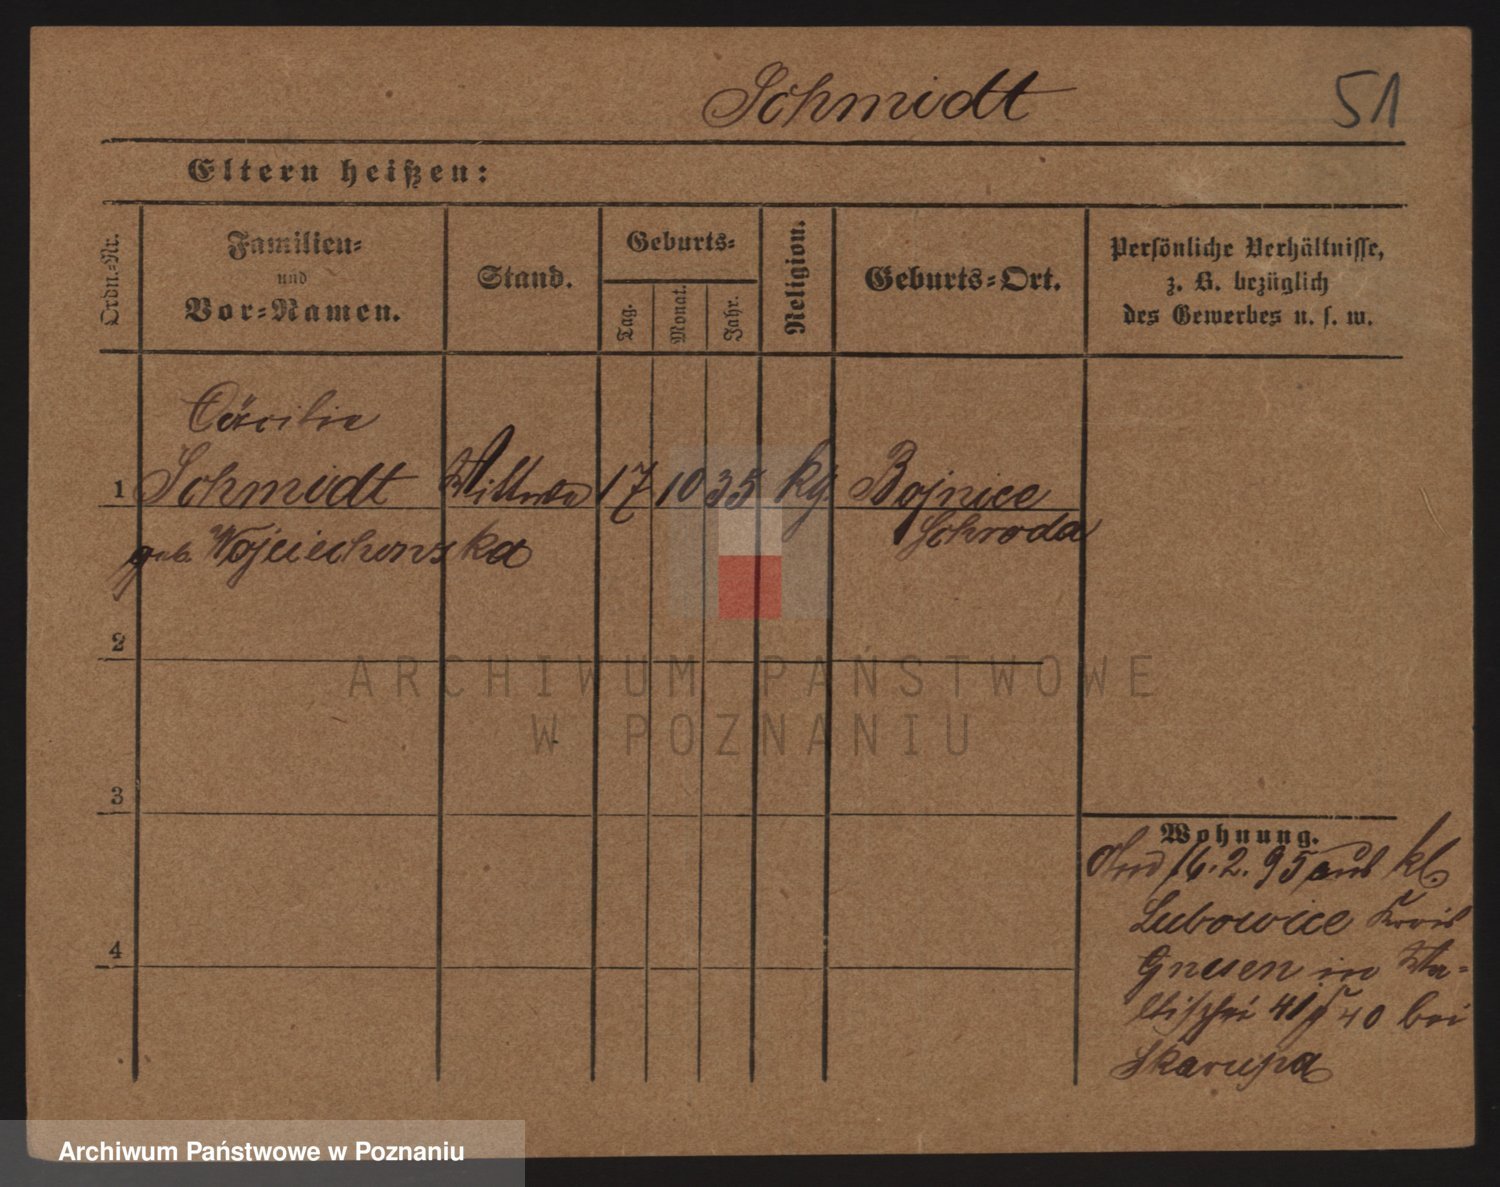 Schmidt
51
Eltern heißen:
Ordn.-Nr.
Familien-
und
Vor-Namen.
Stand.
Geburts-
Tag.
Monat.
Jahr.
Religion.
Geburts-Ort.
Persönliche Verhältnisse,
z. B. bezüglich
des Gewerbes u. s. w.
Cäcilie
1 Schmidt Wittwe 17 10 35 kg Bojnice
Schroda
geb. Wojciechowska
2
3
4
Wohnung.
16.2.95 aus kl.
Lubowice Kreis
Gnesen in Wa-
lischei 41 40 bei
Skarupa
ARCHIWUM PAŃSTWOWE
W POZNANIU
Archiwum Państwowe w Poznaniu